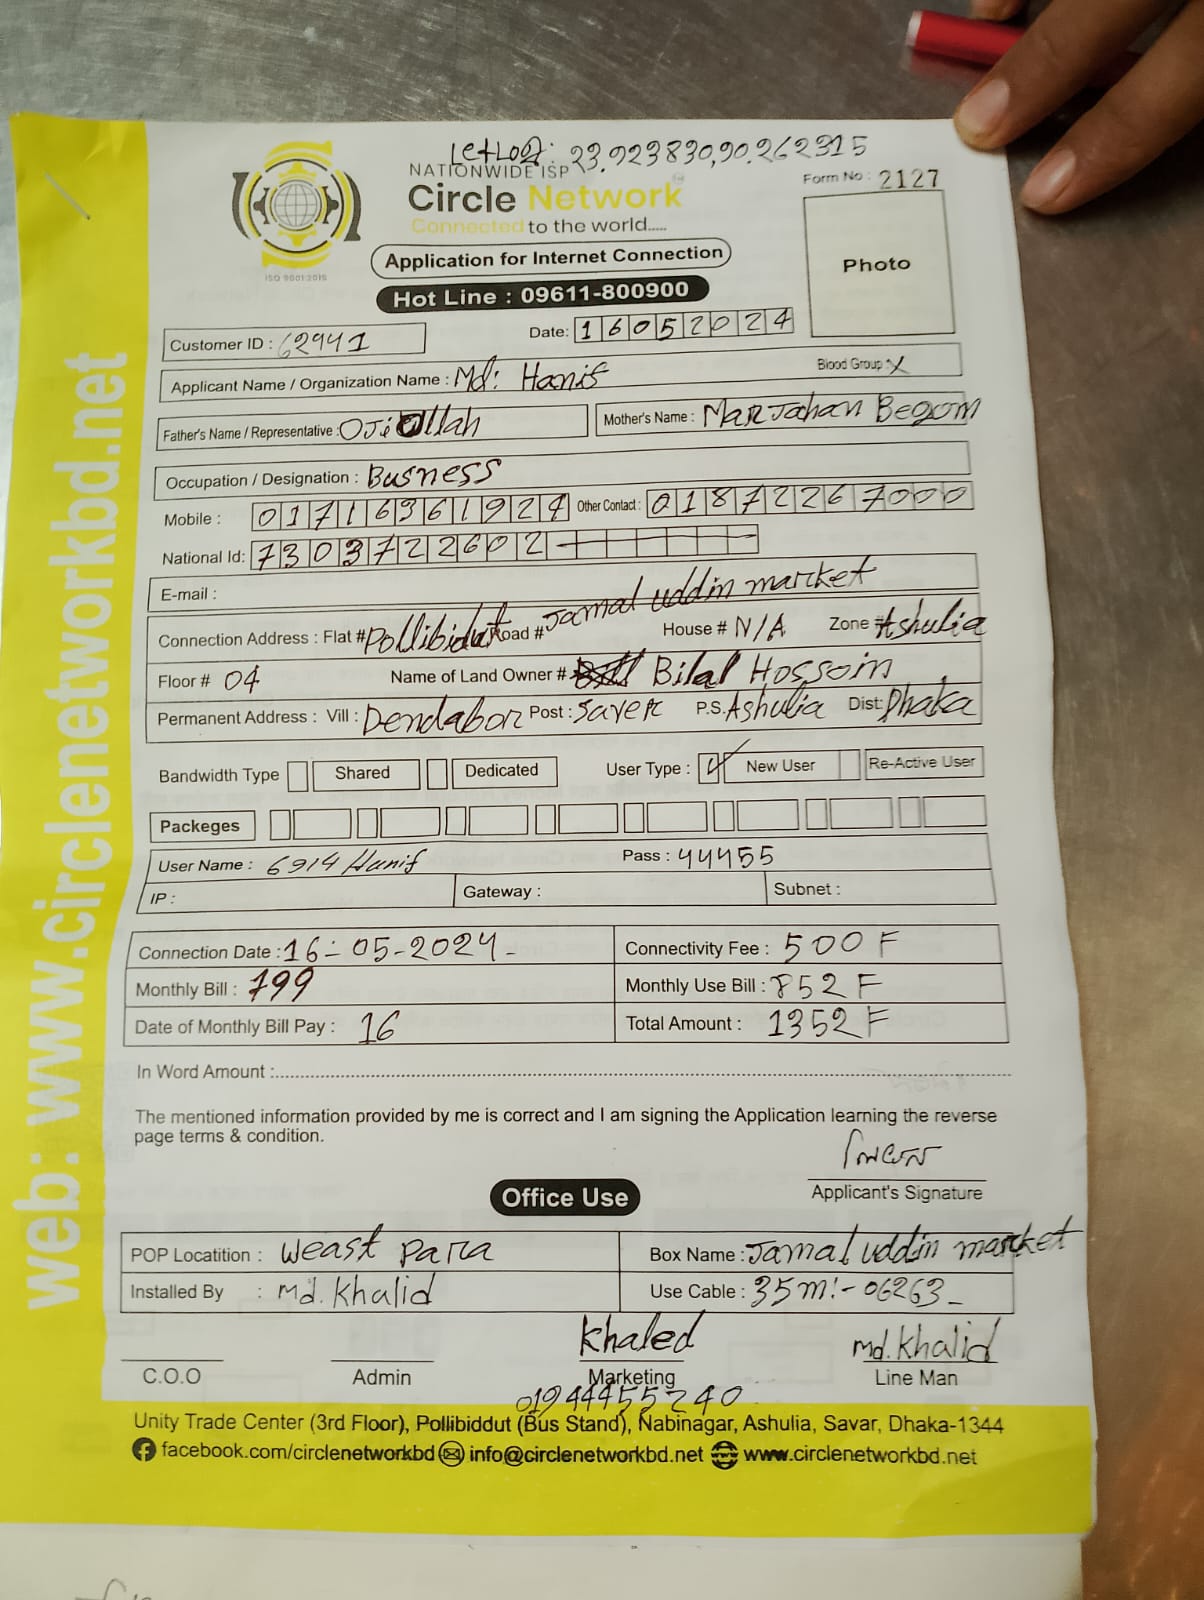 Let Log: 23.923830,90.262315
NATIONWIDE ISP
Circle Network
Connected to the world.....
ISO 9001:2015
Form No : 2127
Photo
Application for Internet Connection
Hot Line : 09611-800900
Customer ID : 62941
Date: 16052024
Applicant Name / Organization Name : Md: Hanif
Blood Group : X
Father's Name / Representative : Oji Ullah
Mother's Name : Marjahan Begom
Occupation / Designation : Busness
Mobile : 01716361924 Other Contact : 01872267000
National Id: 7303722602
E-mail :
Connection Address : Flat # Pollibidut Road # Jamal uddin market House # N/A Zone # Ashulia
Floor # 04 Name of Land Owner # Bilal Hossoin
Permanent Address : Vill : Dendabor Post : Saver P.S. Ashulia Dist: Dhaka
Bandwidth Type Shared Dedicated User Type : ✓ New User Re-Active User
Packeges
User Name : 6914 Hanif Pass : 44455
IP : Gateway : Subnet :
Connection Date : 16-05-2024 Connectivity Fee : 500 F
Monthly Bill : 799 Monthly Use Bill : 852 F
Date of Monthly Bill Pay : 16 Total Amount : 1352 F
In Word Amount :
The mentioned information provided by me is correct and I am signing the Application learning the reverse
page terms & condition.
Applicant's Signature
Office Use
POP Locatition : weast para Box Name : Jamal uddin market
Installed By : Md. Khalid Use Cable : 35m:- 06263
Khaled md. Khalid
C.O.O Admin Marketing Line Man
01944455240
Unity Trade Center (3rd Floor), Pollibiddut (Bus Stand), Nabinagar, Ashulia, Savar, Dhaka-1344
facebook.com/circlenetworkbd info@circlenetworkbd.net www.circlenetworkbd.net
web: www.circlenetworkbd.net